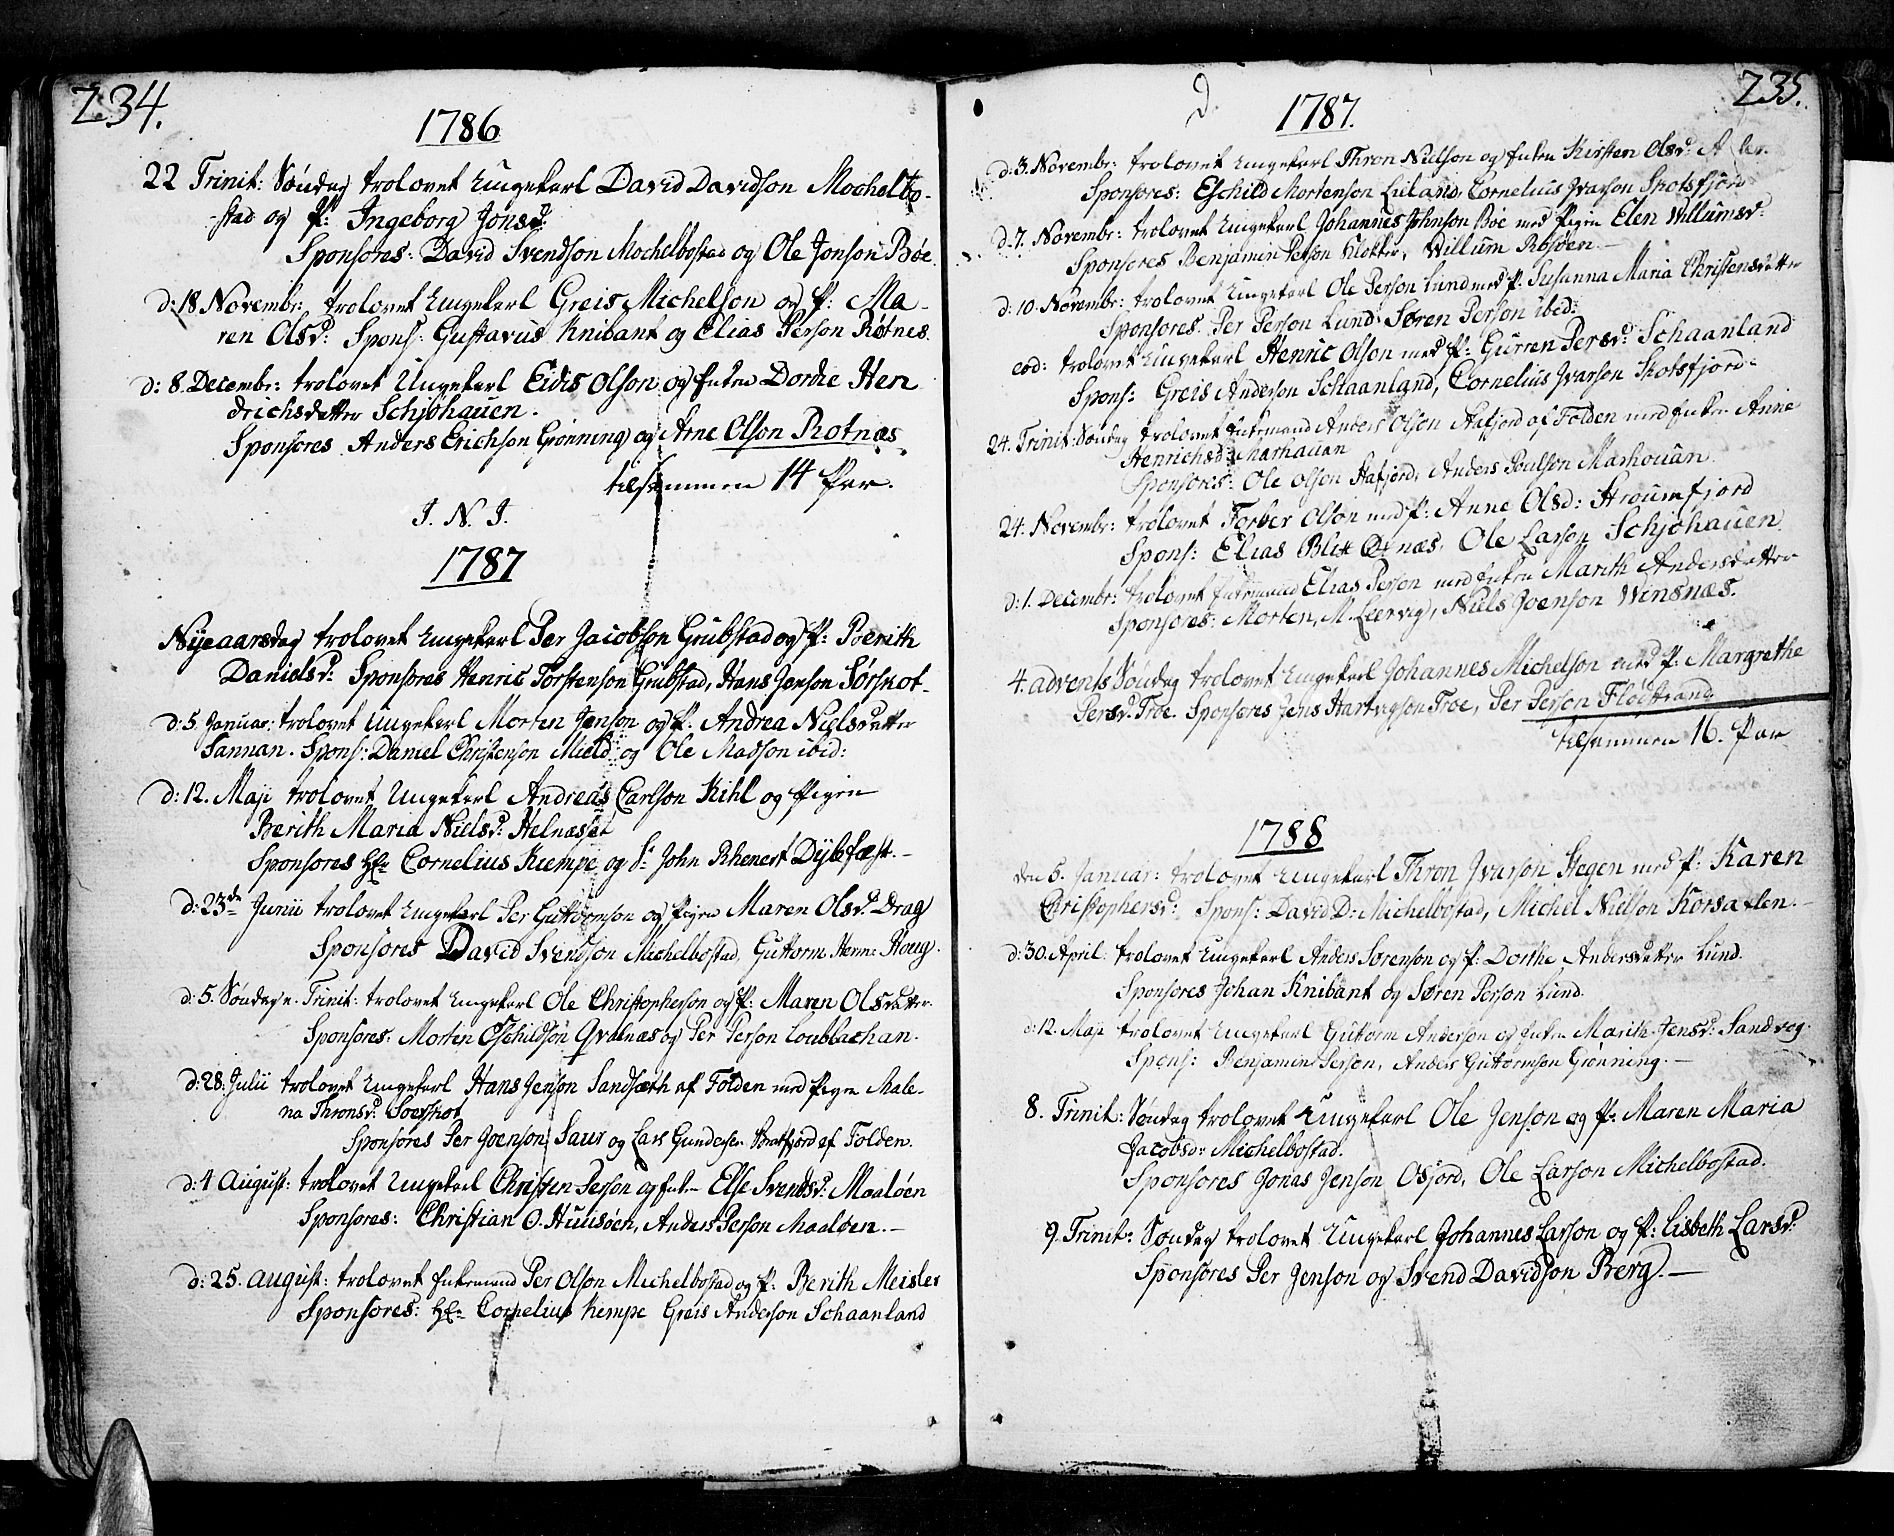 234.
1786
22 Trinit: Søndag trolovet Ungekarl David Davidson Mochelbo-
-stad og P: Ingeborg Jonsd:
Sponsores: David Svendson Mochelbostad og Ole Jonson Bøe.
d: 18 Novembr: trolovet Ungekarl Greis Michelson og P: Ma-
ren Olsd: Spons: Gustavus Knibant og Elias Person Røtnes.
d: 8. Decembr: trolovet Ungekarl Eidis Olson og Enken Dordie Hen
drichsdatter Schjøhauen.
Sponsores Anders Erichson Grønning og Arne Olson Rotnæs
tilsammen 14 Par.
I. N. J.
1787
Nyeaarsdag trolovet Ungekarl Per Jacobson Grubstad og P: Berith
Danielsd: Sponsores Henric Torstenson Grubstad, Hans Jenson Sørskot-
d: 5. Januar: trolovet Ungekarl Morten Jenson og P: Andrea Nielsdatter
Sannan. Spons: Daniel Christenson Mield og Ole Madson ibid:
d: 12. Maji trolovet Ungekarl Andreas Carlson Kihl og Pigen
Berith Maria Nielsd: Helnæsset
Sponsores Hr. Cornelius Kempe og Sr. John Rhenert Dybfæst.-
d: 23de Junii trolovet Ungekarl Per Guttormson og Pigen Maren Olsd: Drag
Sponsores David Svendson Michelbostad, Guttorm Herm: Houg.
d: 5. Søndag e. Trinit: trolovet Ungekarl Ole Christopherson og P: Maren Olsdatter.
Sponsores: Morten Eschildson Qvalnæs og Per Person Loublachan.
d: 28. Julii trolovet Ungekarl Hans Jenson Sandsæth af Folden med Pigen Male-
na Thronsd: Soerskot
Sponsores Per Joenson Saur og Lars Gundersen Bratfjord af Folden.
d: 4 August: trolovet Ungekarl Christen Person og Enk- Else Svendsd: Maaløen
Sponsores: Christian O. Huusøen, Anders Person Maaløen.-
d: 25. August: trolovet Enkemand Per Olson Michelbostad og P: Berith Meisler
Sponsores: Hr. Cornelius Kempe Greis Anderson Schaanland
235.
d.
1787.
d. 3. Novembr: trolovet Ungekarl Thron Nielson og Enken Kirsten Olsd:
Sponsores: Eschild Mortenson Leiland, Cornelius Jvarson Skotsfjord
d: 7. Novembr: trolovet Ungekarl Johannes Johnson Bøe med Pigen Elen Willumsd:
Sponsores Benjamin Person Klokker, Willum Bosøen.-
d: 10. Novembr: trolovet Ungekarl Ole Person Lund med P: Susanna Maria Christensdatter
Sponsores. Per Person Lund, Søren Person ibid:
eod: trolovet Ungekarl Henric Olson med P: Gurren Persd: Schaanland
Spons: Greis Anderson Schaanland, Cornelius Jvarson Skotsfjord-
24. Trinit: Søndag trolovet Enkemand Anders Olson Hafjord af Folden med Enken Anne
Henrichsd: Marhauan
Sponsores: Ole Olson Hafjord, Anders Poulson Marhouan.
24. Novembr: trolovet Forber Olson med P: Anne Olsd: Stroumfjord
Spons: Elias Blix Qvnæs, Ole Larson Schjøhauen
d: 1. Decembr: trolovet Enkemand Elias Person med Enken Marith Andersdatter
Sponsores: Morten M. Leervig, Niels Joenson Winsnæs.
4. Advents Søndag trolovet Ungekarl Johannes Michelson med P: Margrethe
Persd: Troe. Sponsores Jens Hartvigson Troe, Per Person Fløistrand
tilsammen 16. Par
1788
den 5. Januar: trolovet Ungekarl Thron Jvarson Stegen med P: Karen
Christophersd: Spons: David D: Michelbostad, Michel Nielson Korsaxlen.-
d: 30. April: trolovet Ungekarl Anders Sørenson og P: Dorthe Andersdatter Lund.
Sponsores Johan Knibant og Søren Person Lund.
d: 12. Maji trolovet Ungekarl Guttorm Anderson og Enken Marith Jensd: Sandvog.
Spons: Benjamin Person, Anders Guttormson Grønning.-
8. Trinit: Søndag trolovet Ungekarl Ole Jenson og P: Maren Maria
Jacobsd: Michelbostad.
Sponsores Jonas Jenson Osjord, Ole Larson Michelbostad.
9. Trinit: Søndag trolovet Ungekarl Johannes Larson og P: Lisbeth Larsd:
Sponsores Per Jenson og Svend Davidson Berg.-